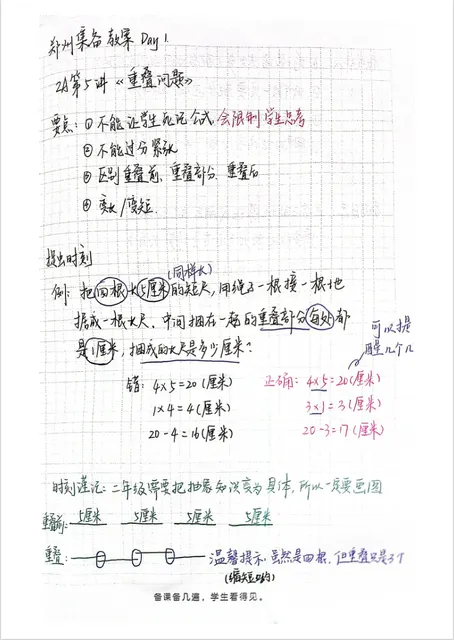 郑州集备教案 Day 1.
2A第5讲《重叠问题》
要点：① 不能让学生死记公式 会限制学生思考
② 不能过分紧张
③ 区别重叠前、重叠部分、重叠后
④ 变长/变短.
提出时刻
(同样长)
例：把四根长5厘米的短尺，用绳子一根接一根地
捆成一根大尺，中间捆在一起的重叠部分每处都
是1厘米，捆成的大尺是多少厘米？
可以提
醒几个几
错：4×5=20(厘米) 正确：4×5=20(厘米)
1×4=4(厘米) 3×1=3(厘米)
20-4=16(厘米) 20-3=17(厘米)
时刻谨记：二年级需要把抽象知识变为具体，所以一定要画图
重叠前：5厘米 5厘米 5厘米 5厘米
重叠： 温馨提示：虽然是四根，但重叠只是3个
(缩短的)
备课备几遍，学生看得见。